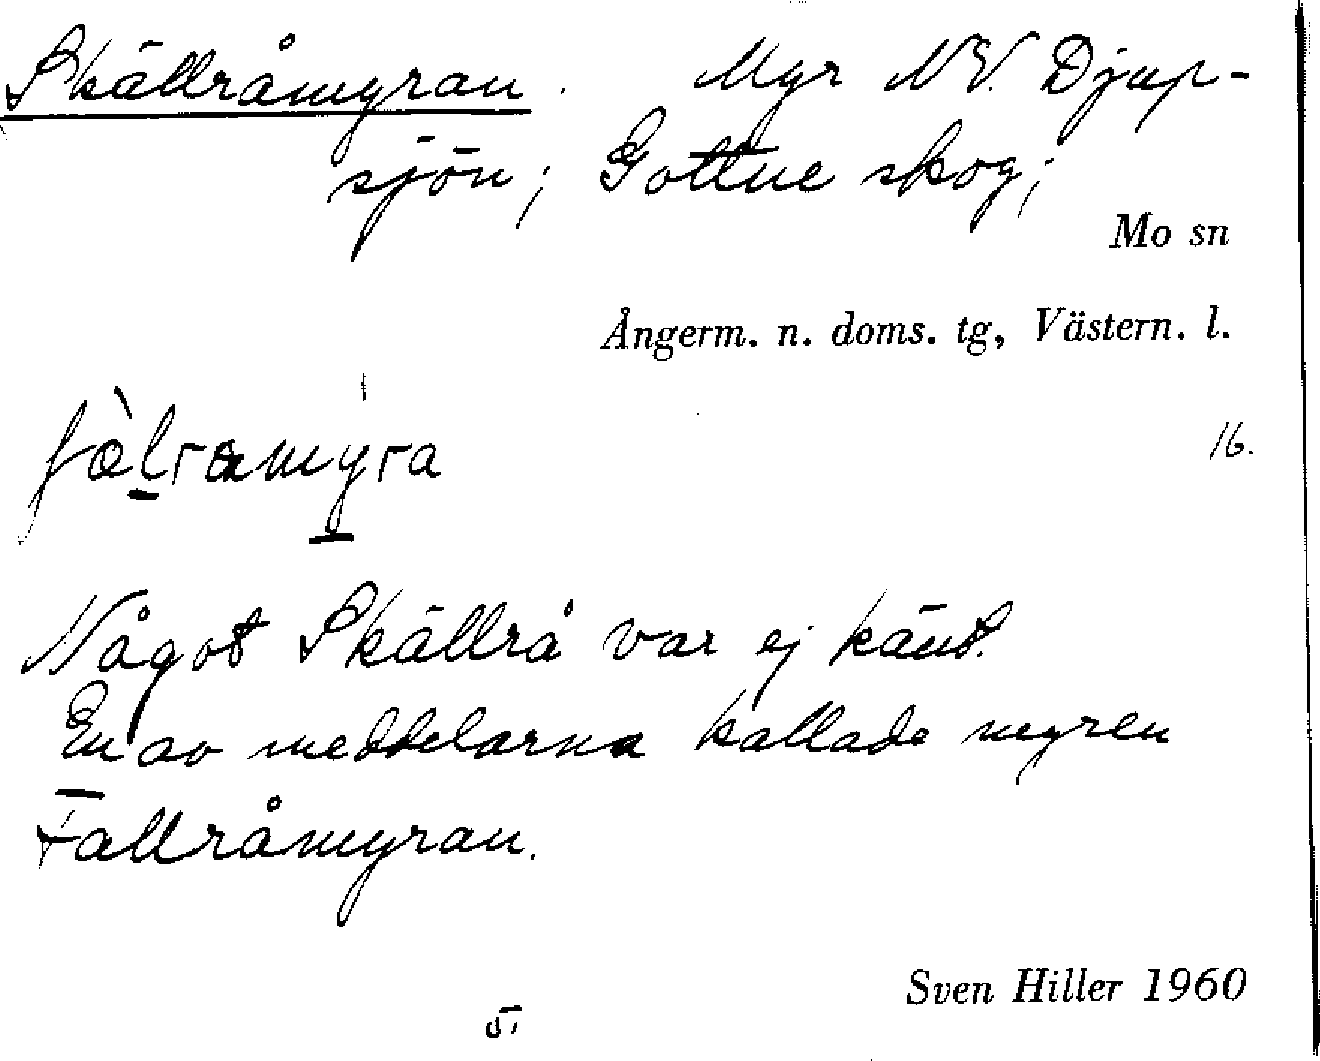 Skällråmyran. Myr NV. Djup-
sjön; Gottne skog;
Mo sn
Ångerm. n. doms. tg, Västern. l.
16.
Något Skällrå var ej känt.
En av meddelarna kallade myren
Fallråmyran.
Sven Hiller 1960